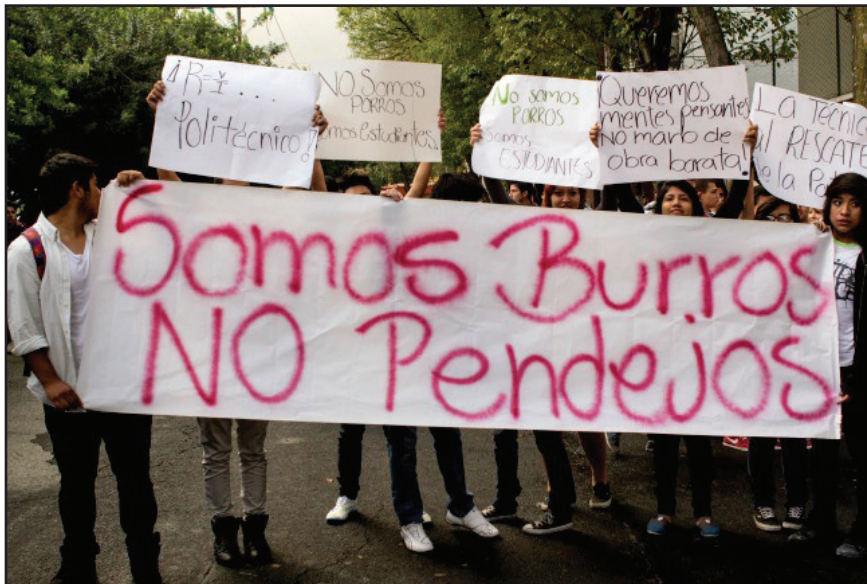 ¡R=V/I . . .
Politécnico!
NO Somos
PORROS
Somos Estudiantes
No somos
PORROS
Somos
ESTUDIANTES
Queremos
mentes pensantes
No mano de
obra barata!
La Técnica
al RESCATE
de la
Somos Burros
NO Pendejos